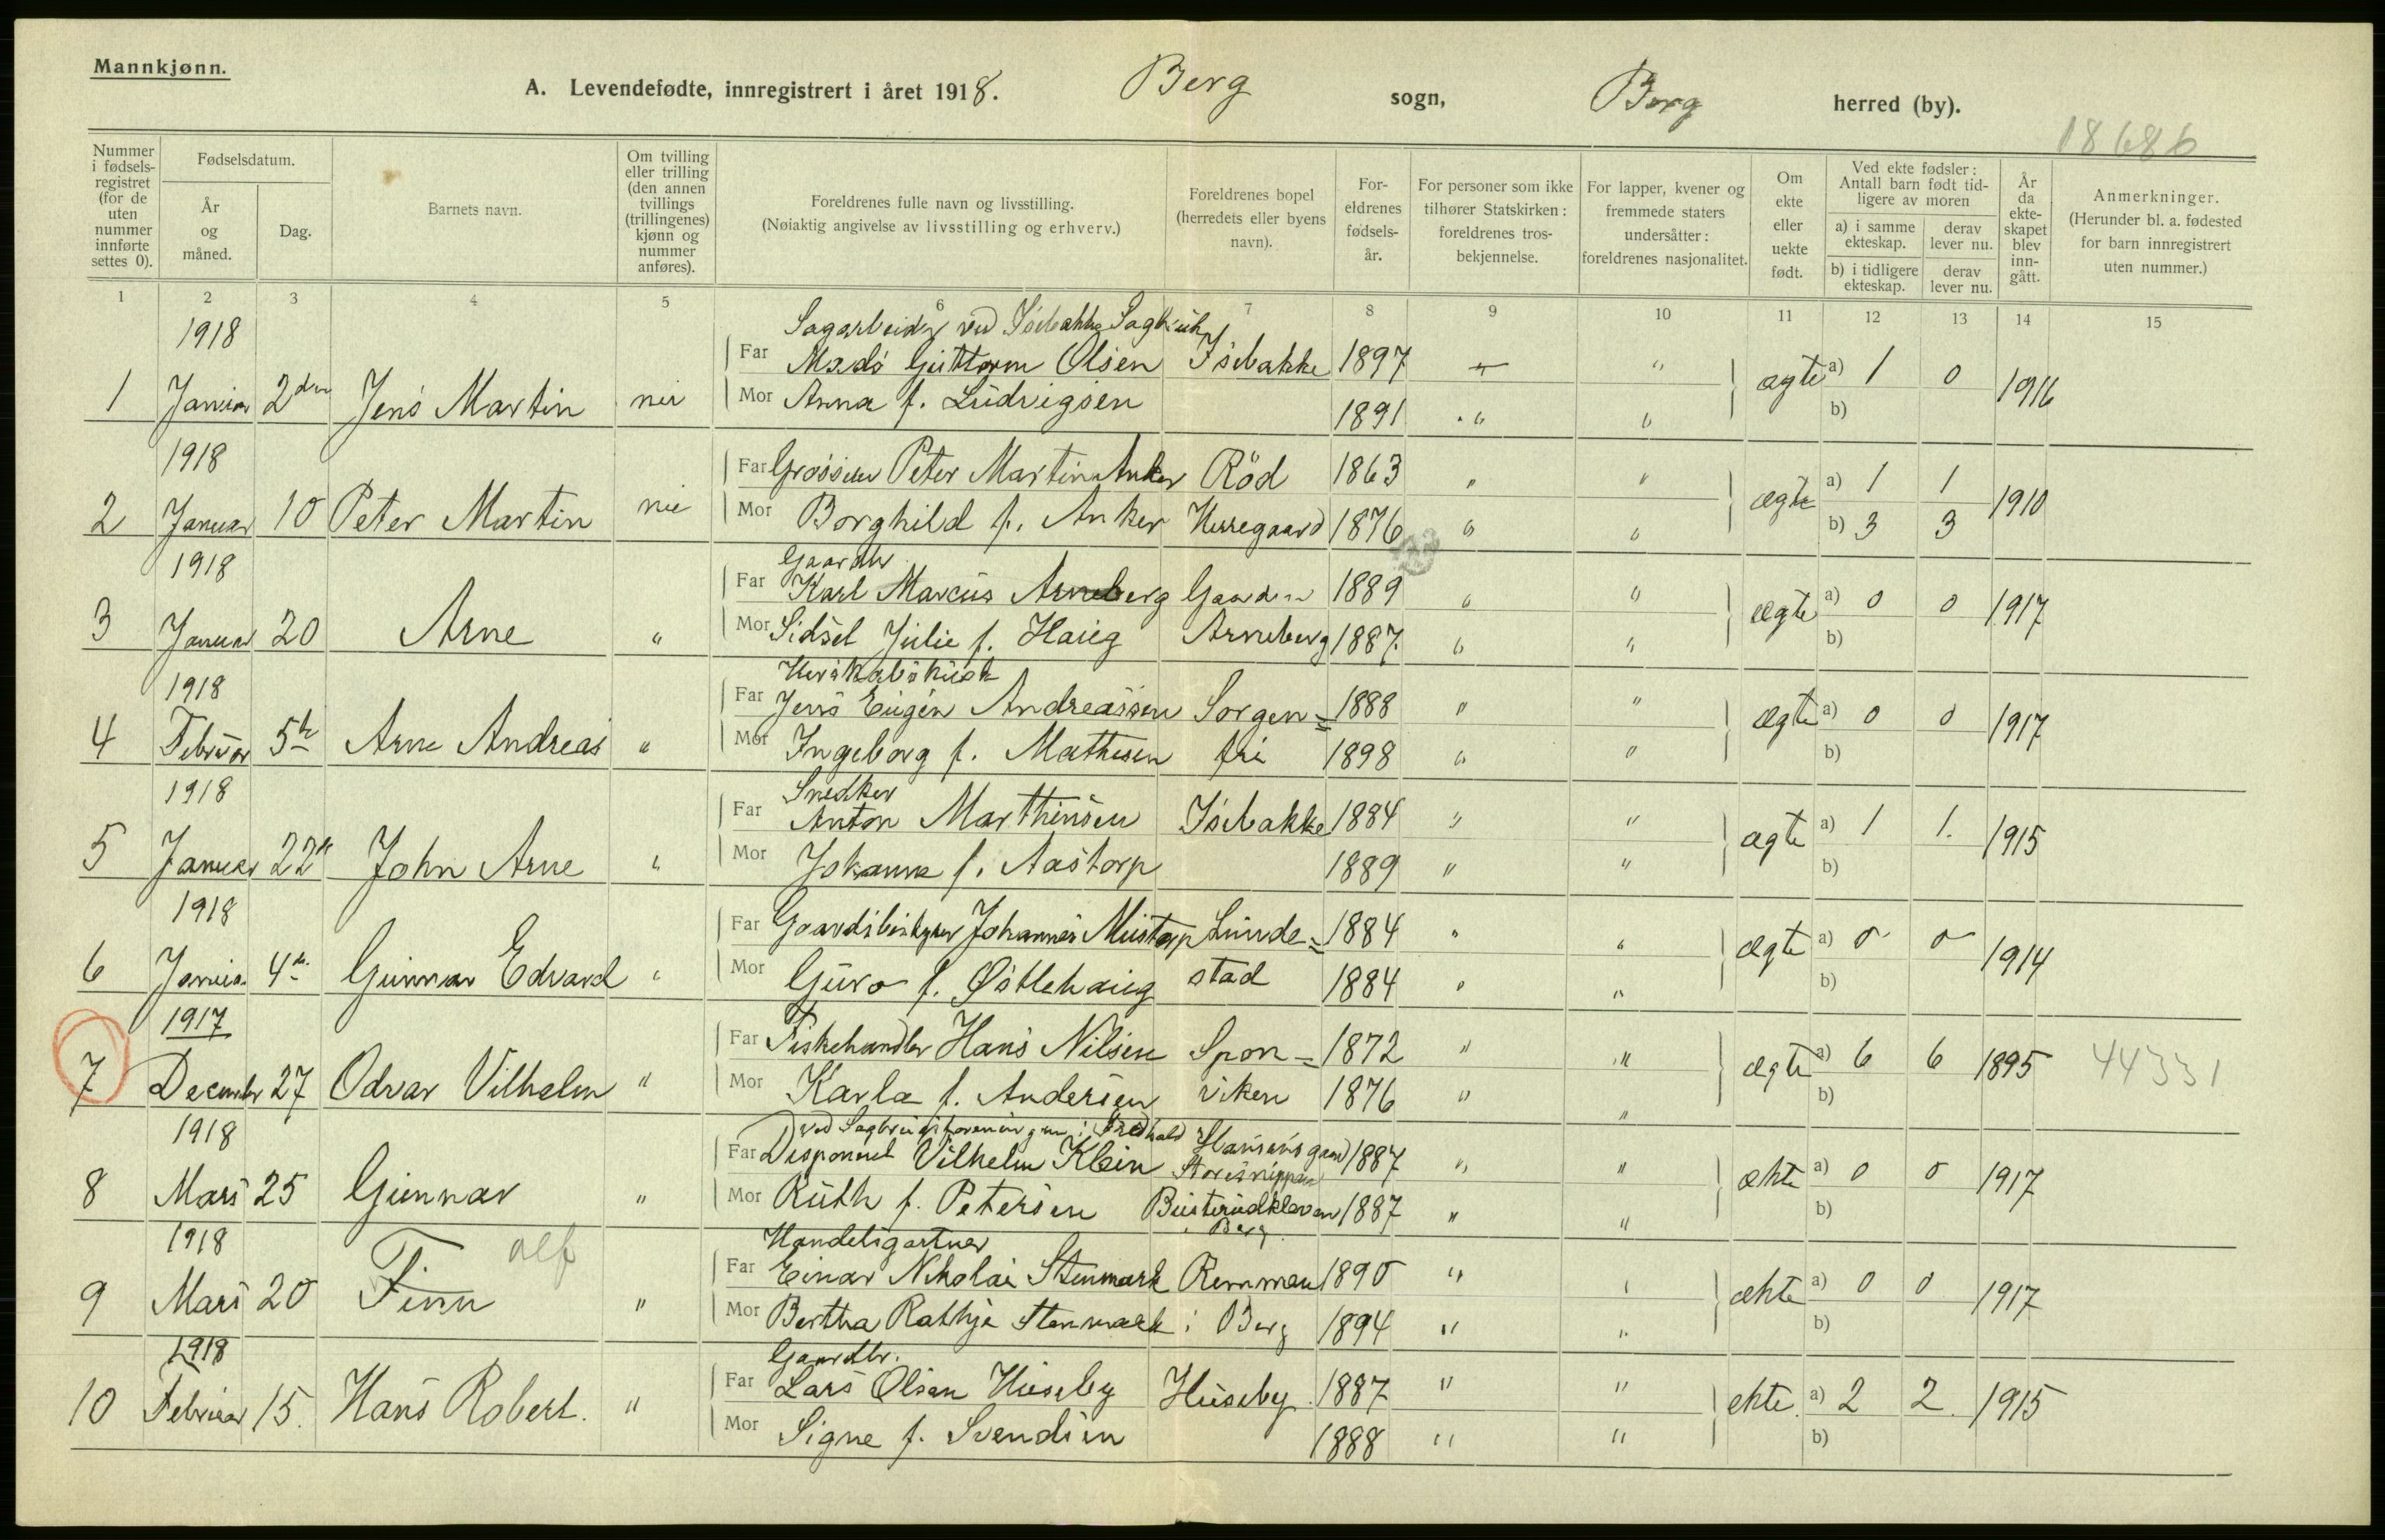 Mannkjønn.
A. Levendefødte, innregistrert i året 1918. Berg sogn, Berg herred (by).
18686
Nummer i fødsels-registret (for de uten nummer innførte settes 0).
Fødselsdatum.
År og måned.
Dag.
Barnets navn.
Om tvilling eller trilling (den annen tvillings (trillingenes) kjønn og nummer anføres).
Foreldrenes fulle navn og livsstilling.
(Nøiaktig angivelse av livsstilling og erhverv.)
Foreldrenes bopel (herredets eller byens navn).
For-eldrenes fødsels-år.
For personer som ikke tilhører Statskirken: foreldrenes tros-bekjennelse.
For lapper, kvener og fremmede staters undersåtter: foreldrenes nasjonalitet.
Om ekte eller uekte født.
Ved ekte fødsler: Antall barn født tid-ligere av moren
a) i samme ekteskap.
derav lever nu.
b) i tidligere ekteskap.
derav lever nu.
År da ekte-skapet blev inn-gått.
Anmerkninger.
(Herunder bl. a. fødested for barn innregistrert uten nummer.)
1 2 3 4 5 6 7 8 9 10 11 12 13 14 15
1918 Sagarbeider ved Isebakke Sagbruk
Far Mads Guttorm Olsen Isebakke 1897 " "
1 Januar 2den Jens Martin nei ægte a) 1 0 1916
Mor Anna f. Ludvigsen 1891 " " b)
1918 Far Grosserer Peter Martin Anker Röd 1863 " "
2 Januar 10 Peter Martin nei ægte a) 1 1 1910
Mor Borghild f. Anker Herregaard 1876 " " b) 3 3
1918 Gaardbr
Far Karl Marcus Arneberg Gaarden 1889 " "
3 Januar 20 Arne " ægte a) 0 0 1917
Mor Sidsel Julie f. Haug Arneberg 1887. " " b)
1918 Herskabskusk
Far Jens Eugen Andreassen Sorgen= 1888 " "
4 Februar 5te Arne Andreas " ægte a) 0 0 1917
Mor Ingeborg f. Mathesen fri 1898 " " b)
1918 Snedker
Far Anton Marthinsen Isebakke 1884 " "
5 Januar 22de John Arne " ægte a) 1 1. 1915
Mor Johanne f. Aastorp 1889 " " b)
1918 Far Gaardsbestyrer Johannes Mustorp Lunde= 1884 " "
6 Januar 4de Gunnar Edvard " ægte a) 0 0 1914
Mor Guro f. Østlehaug stad 1884 " " b)
1917 Far Fiskehandler Hans Nilsen Spon= 1872 " "
7 December 27 Odvar Vilhelm " ægte a) 6 6 1895 44331
Mor Karla f. Andersen viken 1876 " " b)
1918 ved Sagbrugsforeningen i Fredhald
Far Disponent Vilhelm Klein Hansensgaard 1887 " "
8 Mars 25 Gunnar " ekte a) 0 0 1917
Mor Ruth f. Petersen Busterudkleven 1887 " " b)
i Berg
1918 Handelsgartner
Far Einar Nikolai Stenmark Remmen 1890 " "
9 Mars 20 Finn alf " ekte a) 0 0 1917
Mor Bertha Rathje Stenmark i Berg 1894 " " b)
1918 Gaardbr.
Far Lars Olsen Huseby Huseby. 1887 " "
10 Februar 15. Hans Robert. " ekte. a) 2 2. 1915
Mor Signe f. Svendsen 1888 " " b)